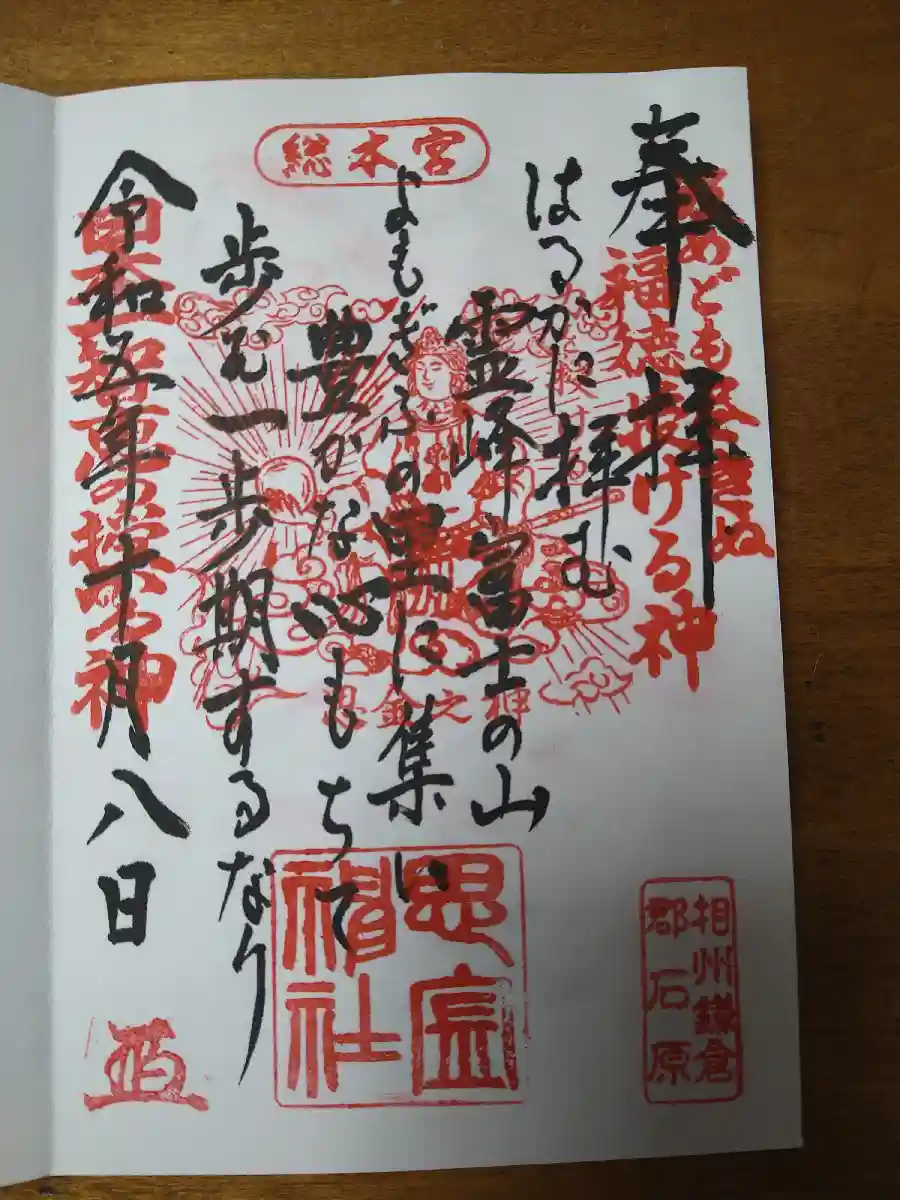 総本宮
奉拝
めども尽きぬ
福徳授ける神
はるかに拝む
霊峰富士の山
よもぎふの里に集い
豊かな心もちて
歩む一歩期するなり
令和五年十月八日
思金之神
思金
神社
相州鎌倉
郡石原